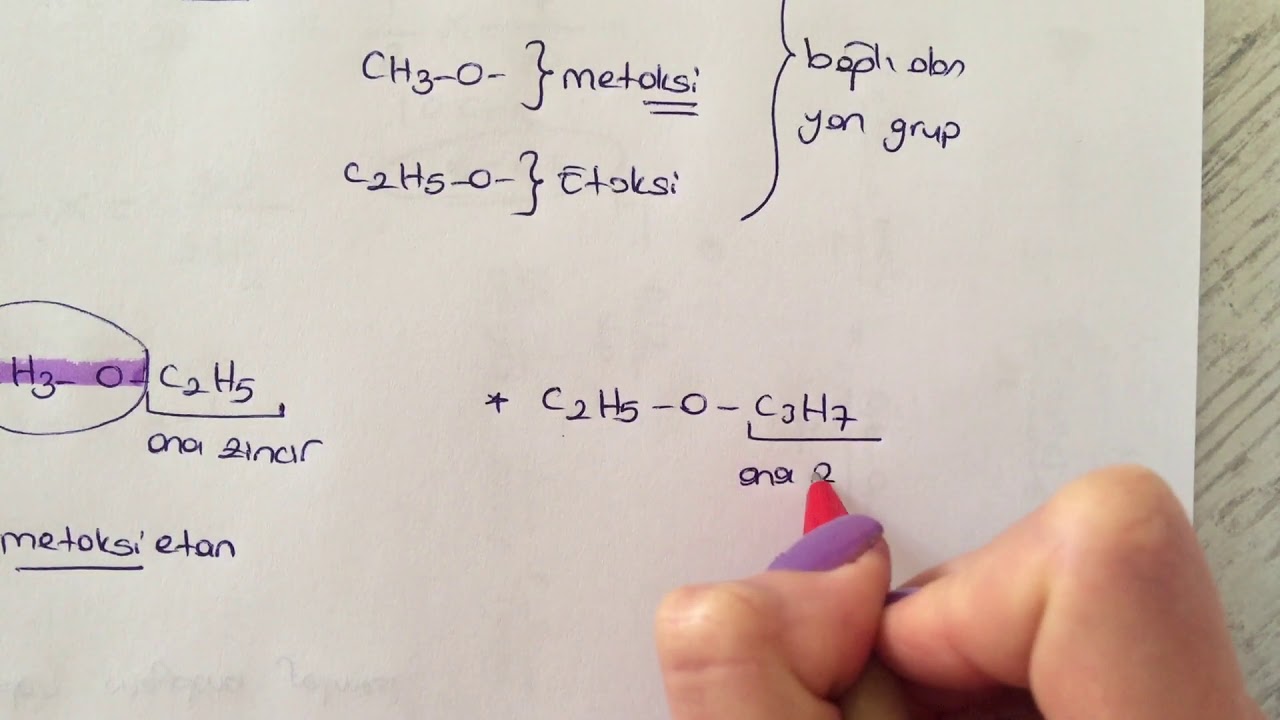 CH3-O- } metoksi
C2H5-O- } Etoksi
bağlı olan
yan grup
H3-O- C2H5
ana zincir
metoksi etan
* C2H5-O-C3H7
ana z